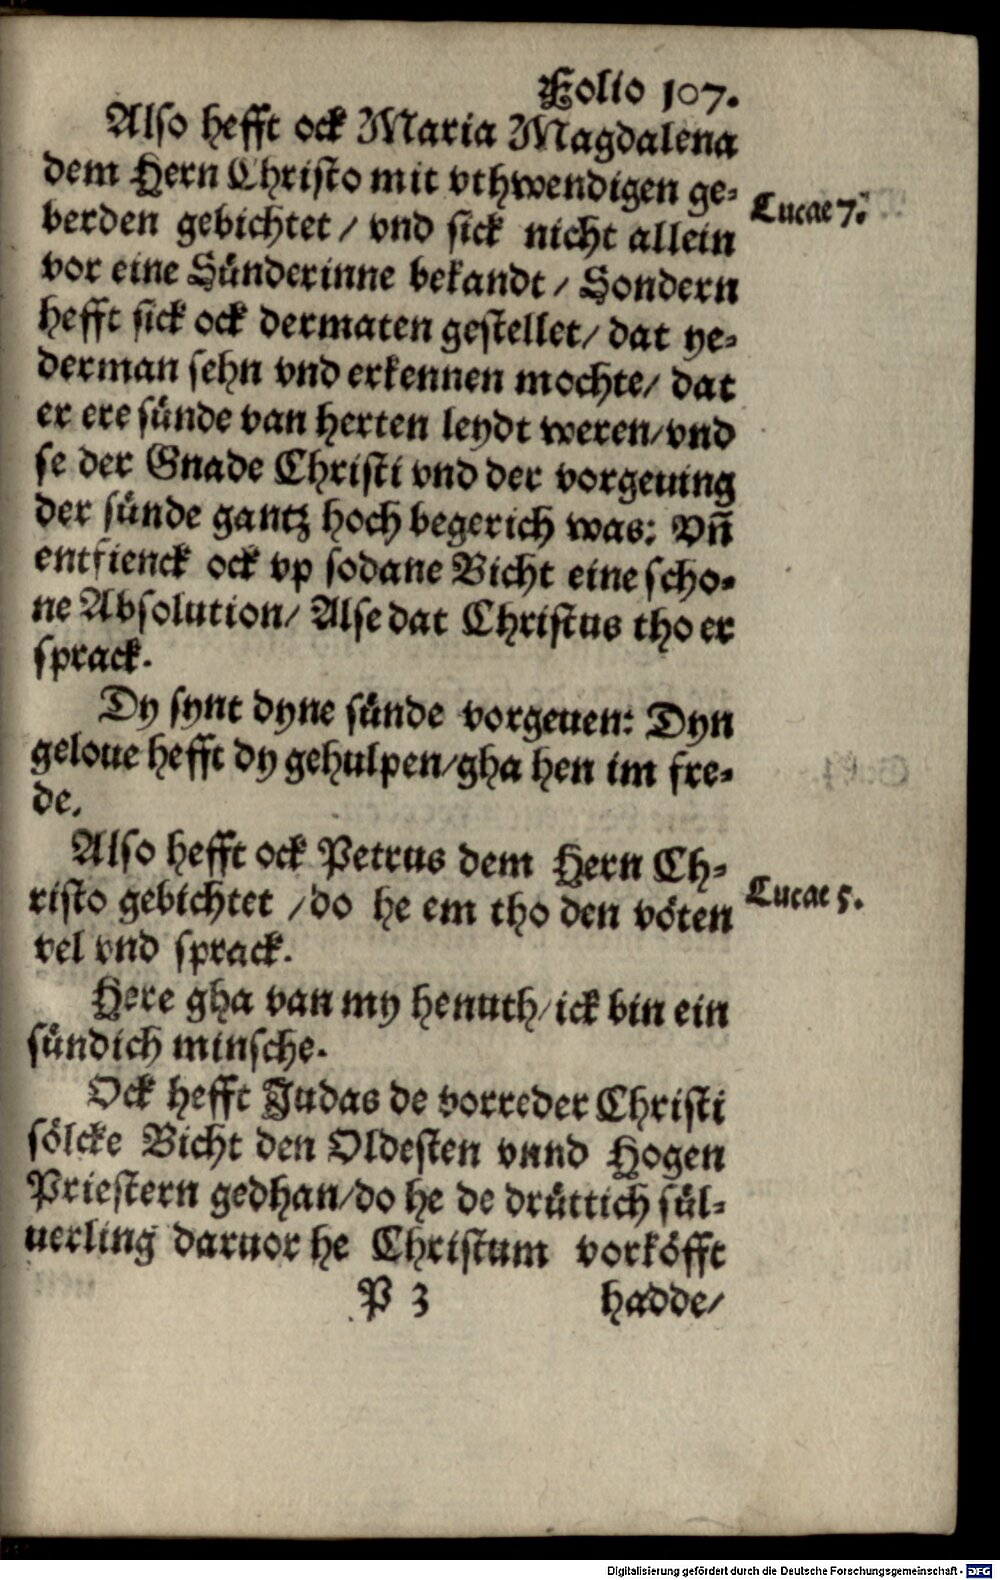 Folio 107.
Also hefft ock Maria Magdalena
dem Hern Christo mit vthwendigen ge-
berden gebichtet / vnd sick nicht allein
vor eine Sünderinne bekandt / Sondern
hefft sick ock dermaten gestellet / dat ye-
derman sehn vnd erkennen mochte / dat
er ere sünde van herten leydt weren / vnd
se der Gnade Christi vnd der vorgeuing
der sünde gantz hoch begerich was: Vñ
entfienck ock vp sodane Bicht eine scho-
ne Absolution / Alse dat Christus tho er
sprack.
Lucae 7.
Dy synt dyne sünde vorgeuen: Dyn
geloue hefft dy gehulpen / gha hen im fre-
de.
Also hefft ock Petrus dem Hern Ch-
risto gebichtet / do he em tho den vöten
vel vnd sprack.
Lucae 5.
Here gha van my henuth / ick bin ein
sündich minsche.
Ock hefft Judas de vorreder Christi
sölcke Bicht den Oldesten vnnd Hogen
Priestern gedhan / do he de drüttich sül-
uerling daruor he Christum vorköfft
P 3 hadde /
Digitalisierung gefördert durch die Deutsche Forschungsgemeinschaft - DFG